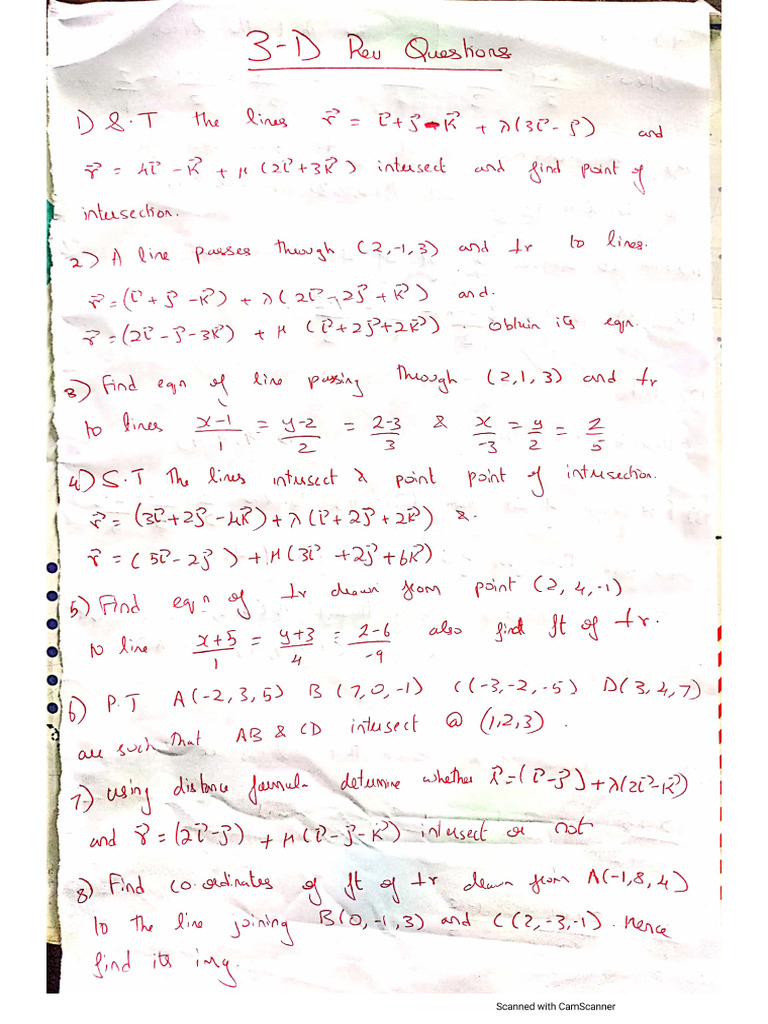 3-D Rev Questions
1) S.T the lines r⃗ = i⃗+j⃗-k⃗ + λ(3i⃗-j⃗) and
r⃗ = 4i⃗ -k⃗ + μ (2i⃗+3k⃗) intersect and find point of
intersection.
2) A line passes through (2,-1,3) and ⊥r to lines.
r⃗=(i⃗+j⃗-k⃗) + λ(2i⃗-2j⃗+k⃗) and.
r⃗=(2i⃗-j⃗-3k⃗) + μ (i⃗+2j⃗+2k⃗). obtain its eqn.
3) Find eqn of line passing through (2,1,3) and ⊥r
to lines (x-1)/1 = (y-2)/2 = (z-3)/3 & x/-3 = y/2 = z/5
4) S.T the lines intersect & point point of intersection.
r⃗=(3i⃗+2j⃗-4k⃗)+λ(i⃗+2j⃗+2k⃗) &.
r⃗=(5i⃗-2j⃗)+μ(3i⃗+2j⃗+6k⃗)
5) Find eqn of ⊥r drawn from point (2,4,-1)
to line (x+5)/1 = (y+3)/4 = (z-6)/-9 also find ft of ⊥r.
6) P.T A(-2,3,5) B(7,0,-1) C(-3,-2,-5) D(3,4,7)
are such that AB & CD intersect @ (1,2,3).
7) using distance formula determine whether r⃗=(i⃗-j⃗)+λ(2i⃗-k⃗)
and r⃗=(2i⃗-j⃗)+μ(i⃗-j⃗-k⃗) intersect or not
8) Find co-ordinates of ft of ⊥r drawn from A(-1,8,4)
to the line joining B(0,-1,3) and C(2,-3,-1). hence
find its img.
Scanned with CamScanner